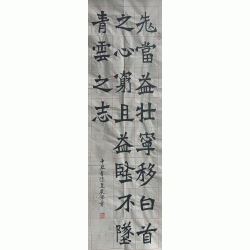 老當益壯寧移白首
之心窮且益堅不墜
青雲之志